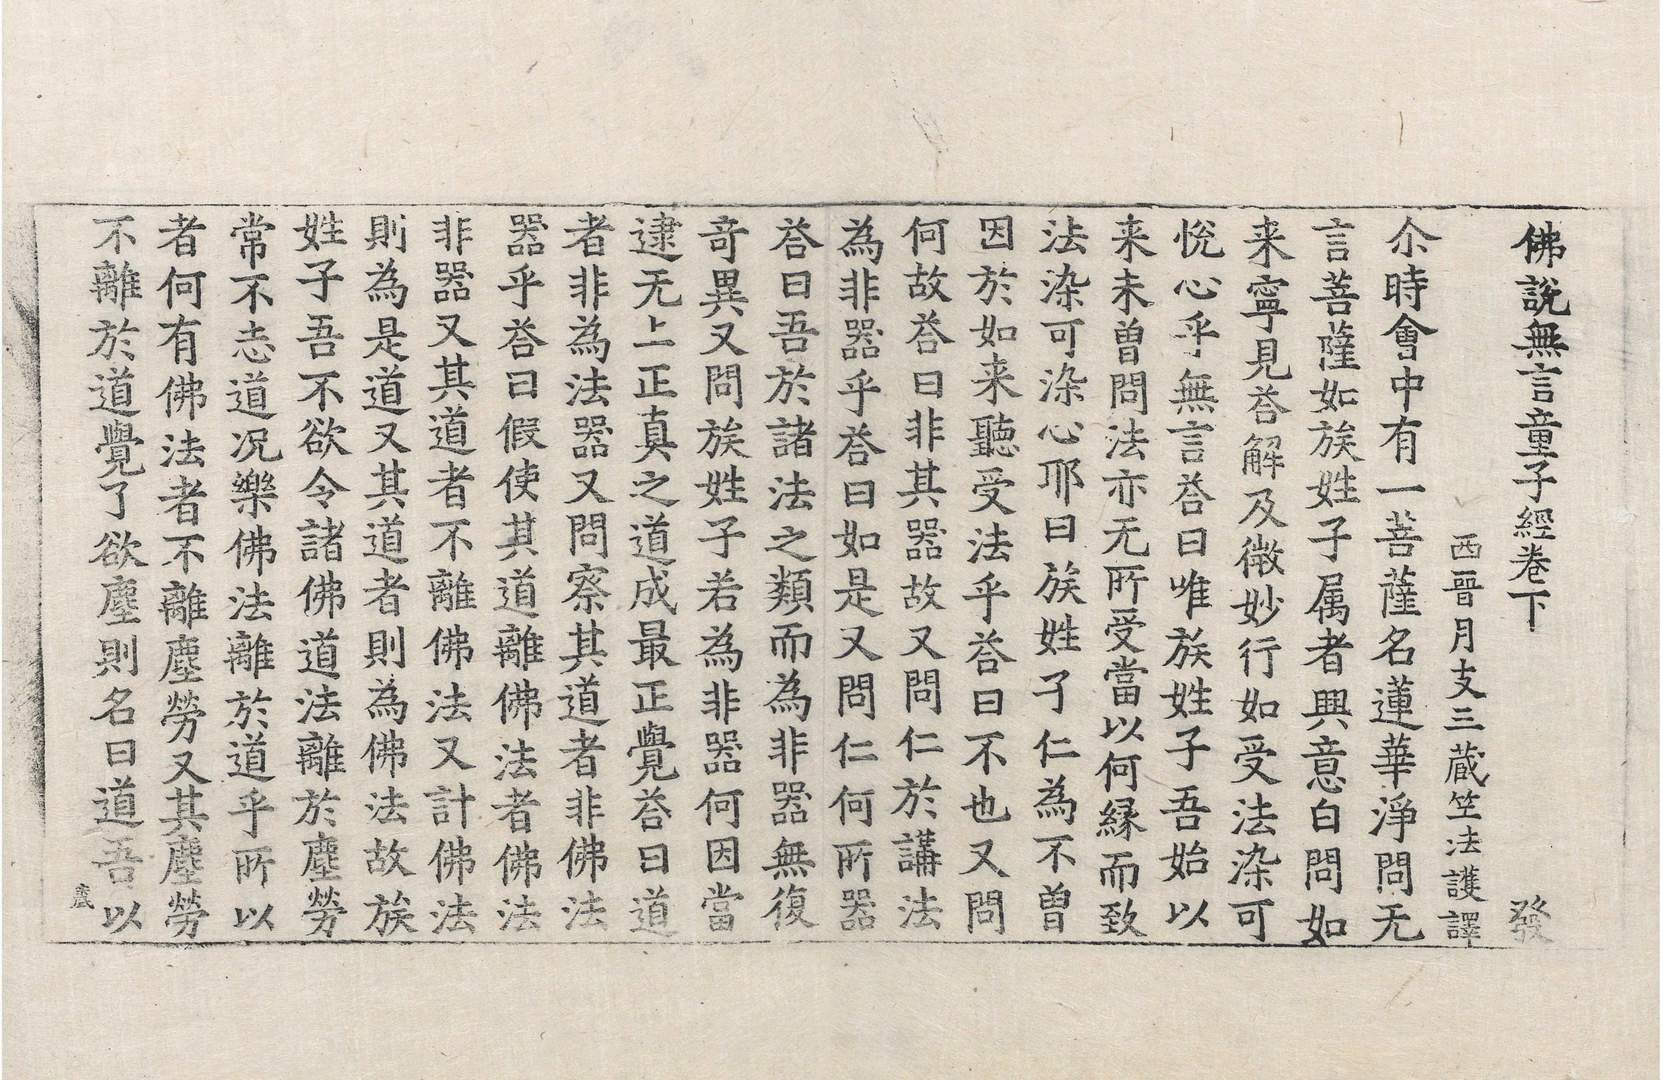 佛說無言童子經卷下　發
西晉月支三藏竺法護譯
尒時會中有一菩薩名蓮華淨問无
言菩薩如族姓子属者興意白問如
来寧見荅解及微妙行如受法染可
悅心乎無言荅曰唯族姓子吾始以
来未曾問法亦无所受當以何縁而致
法染可染心耶曰族姓子仁為不曾
因於如来聽受法乎荅曰不也又問
何故荅曰非其器故又問仁於講法
為非器乎荅曰如是又問仁何所器
荅曰吾於諸法之類而為非器無復
奇異又問族姓子若為非器何因當
逮无上正真之道成最正覺荅曰道
者非為法器又問察其道者非佛法
器乎荅曰假使其道離佛法者佛法
非器又其道者不離佛法又計佛法
則為是道又其道者則為佛法故族
姓子吾不欲令諸佛道法離於塵勞
常不志道况樂佛法離於道乎所以
者何有佛法者不離塵勞又其塵勞
不離於道覺了欲塵則名曰道吾以